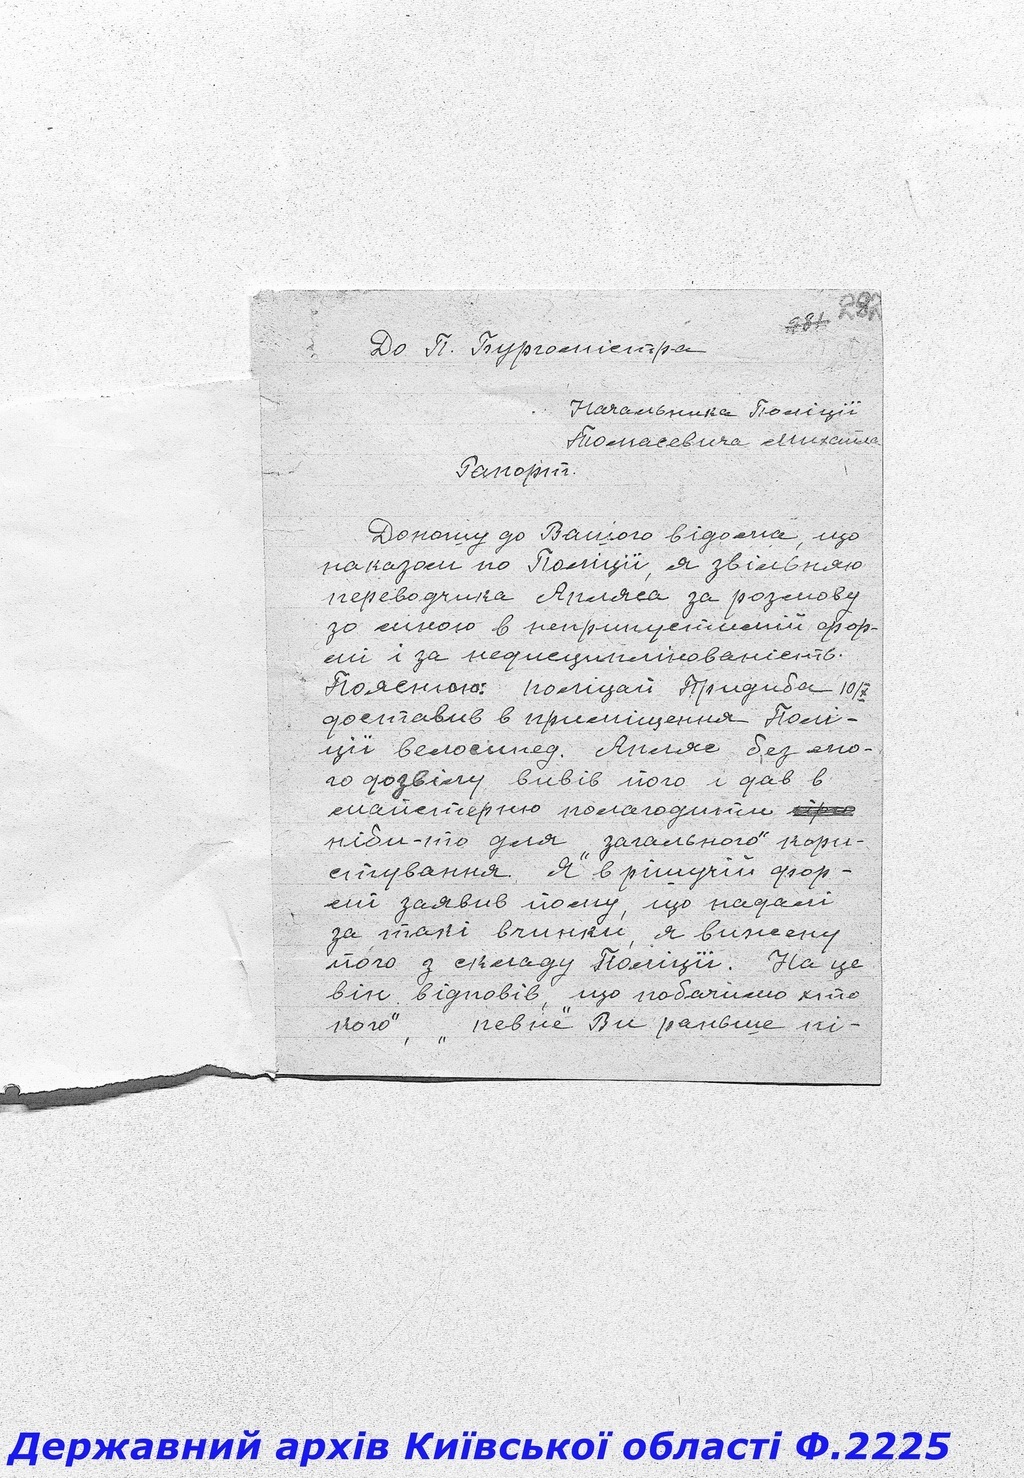 281 282
До П. Бургомістра
Начальника Поліції
Томасевича Михайла
Рапорт.
Доношу до Вашого відома, що
наказом по Поліції, я звільняю
переводчика Апляса за розмову
зо мною в неприпустимій фор-
мі і за недисциплінованість.
Пояснюю: поліцай Придиба 10/X
доставив в приміщення Полі-
ції велосипед. Апляс без мо-
го дозвілу вивів його і дав в
майстерню полагодити
ніби-то для „загального" кори-
стування. Я в рішучій фор-
мі заявив йому, що надалі
за такі вчинки, я вижену
його з складу Поліції. На це
він відповів, що побачимо хто
кого", „певне" Ви раньше пі-
Державний архів Київської області Ф.2225